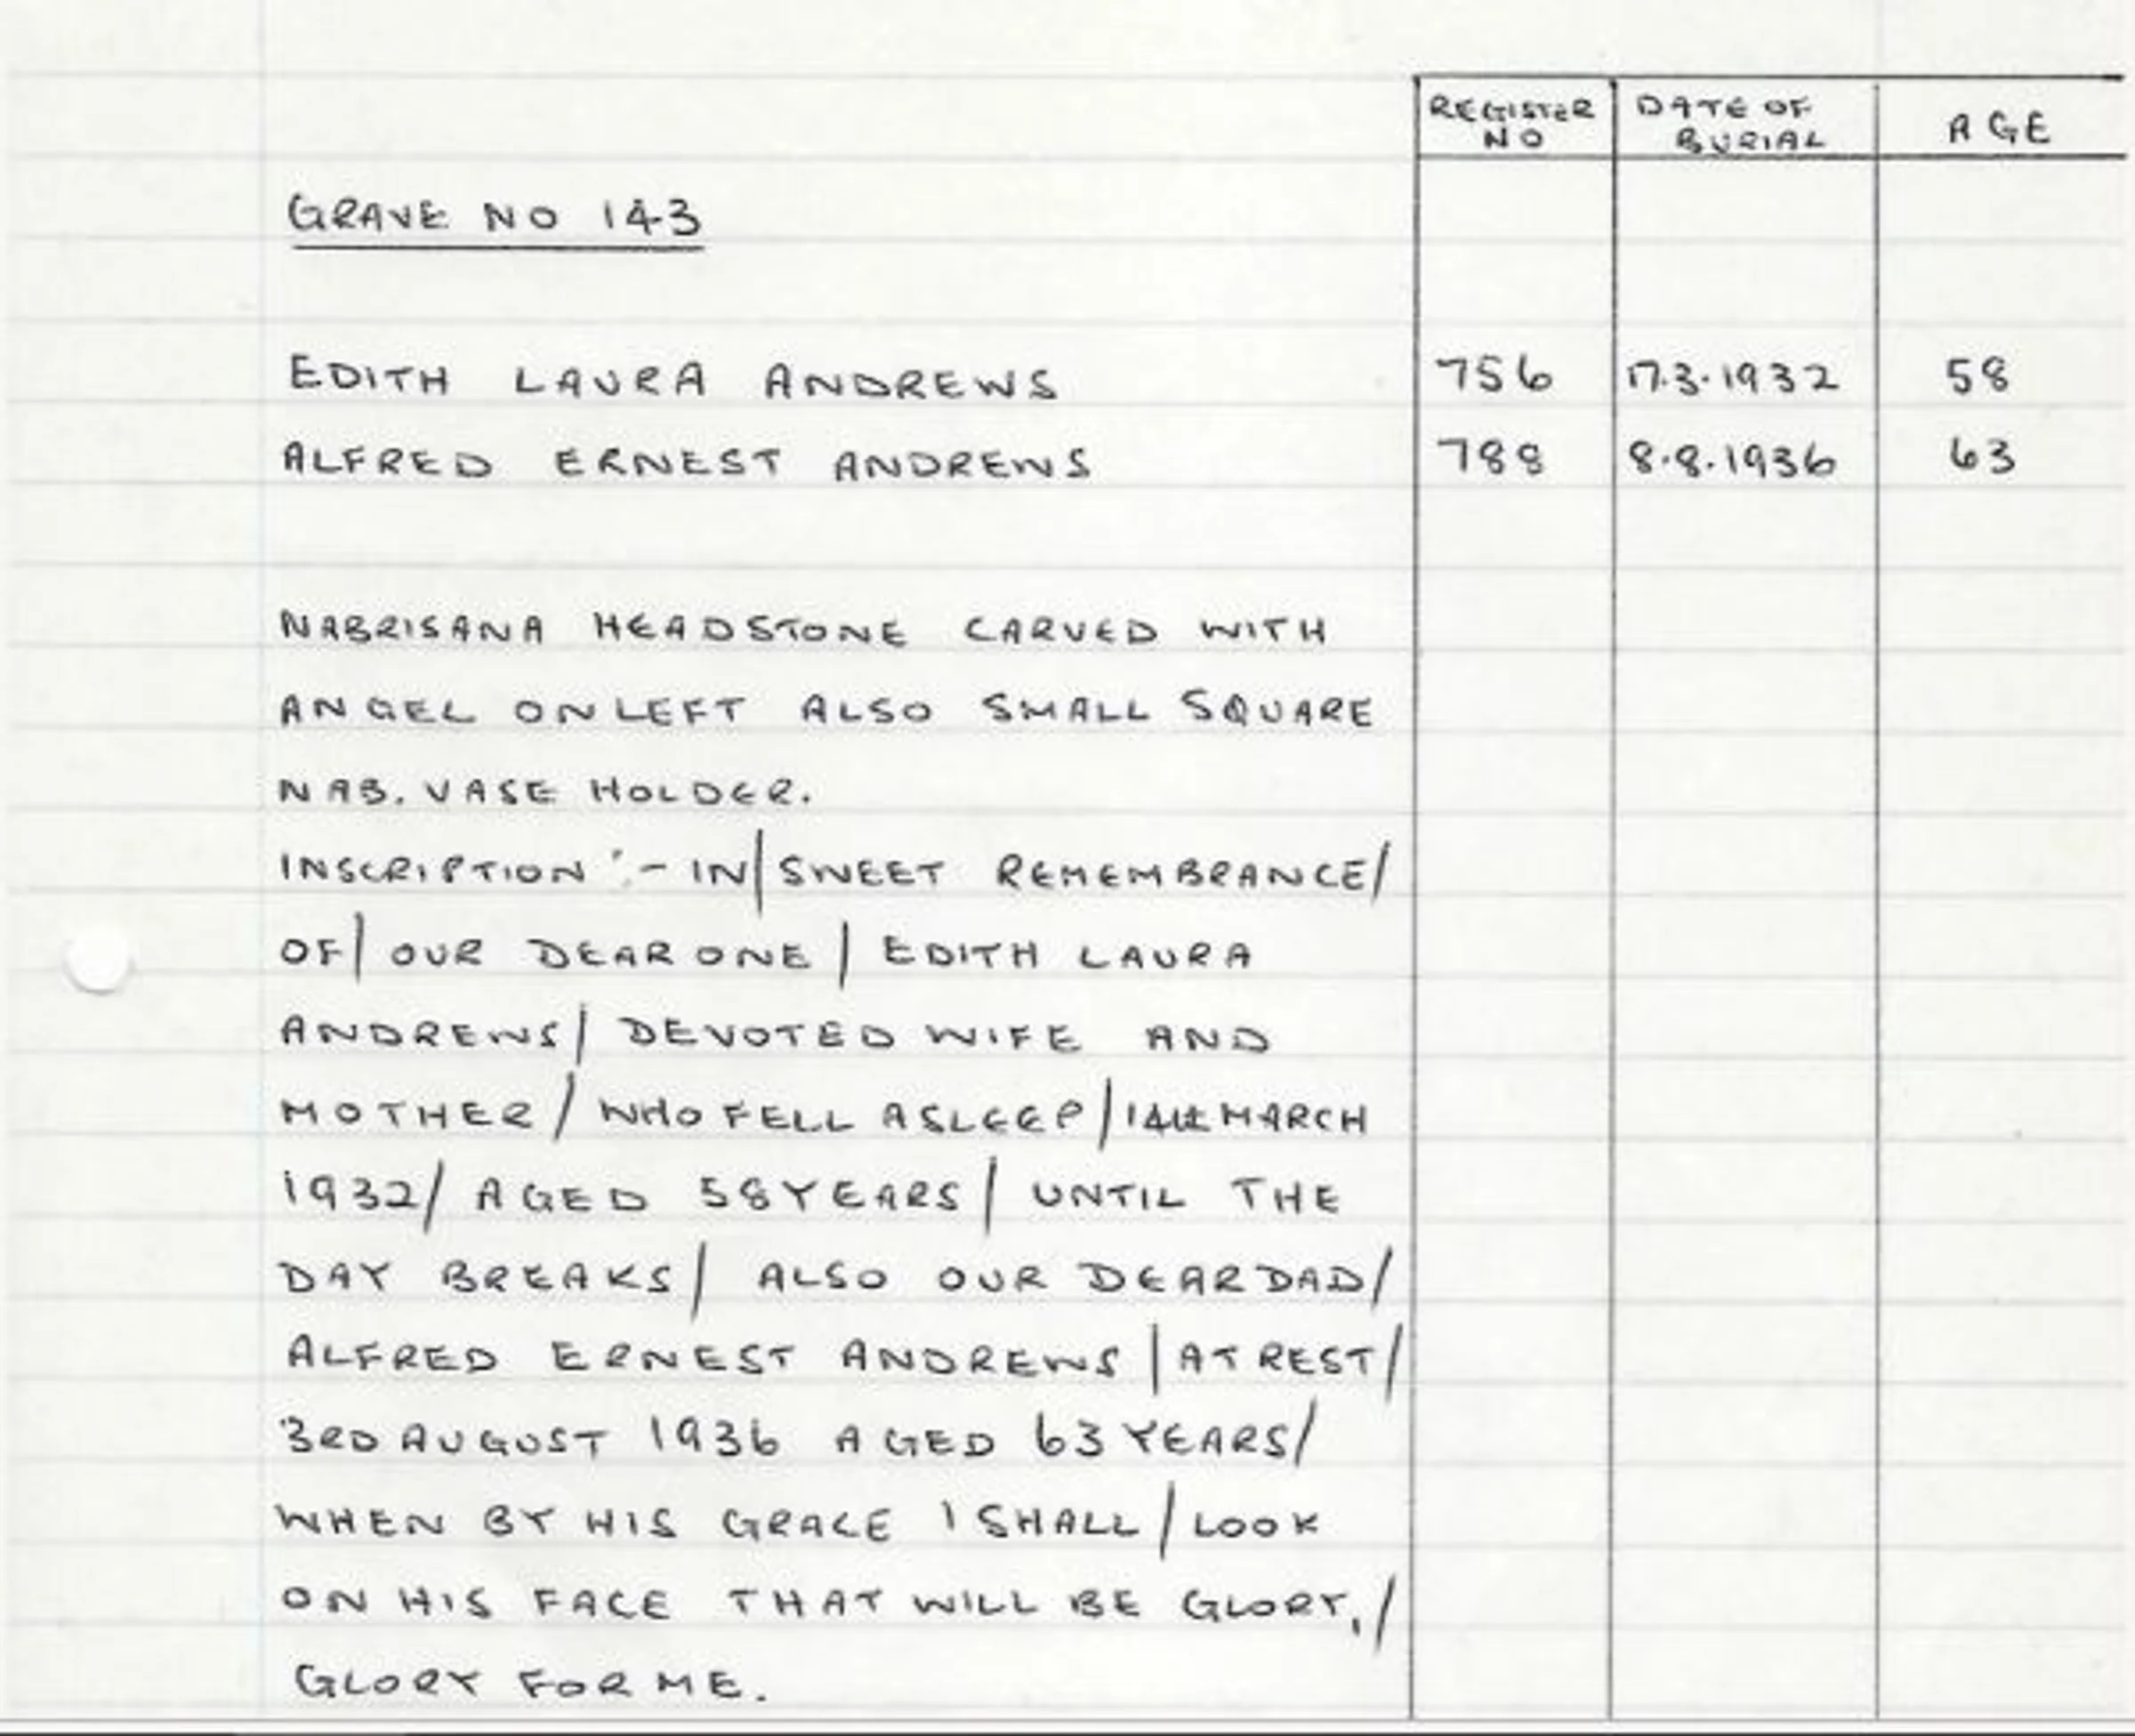 REGISTER NO DATE OF BURIAL AGE
GRAVE NO 143
EDITH LAURA ANDREWS 756 17.3.1932 58
ALFRED ERNEST ANDREWS 788 8.8.1936 63
NABRISANA HEADSTONE CARVED WITH
ANGEL ON LEFT ALSO SMALL SQUARE
NAB. VASE HOLDER.
INSCRIPTION :- IN/ SWEET REMEMBRANCE/
OF/ OUR DEAR ONE / EDITH LAURA
ANDREWS/ DEVOTED WIFE AND
MOTHER/ WHO FELL ASLEEP/ 14th MARCH
1932/ AGED 58 YEARS/ UNTIL THE
DAY BREAKS/ ALSO OUR DEAR DAD/
ALFRED ERNEST ANDREWS / AT REST/
3RD AUGUST 1936 AGED 63 YEARS/
WHEN BY HIS GRACE I SHALL/ LOOK
ON HIS FACE THAT WILL BE GLORY,/
GLORY FOR ME.